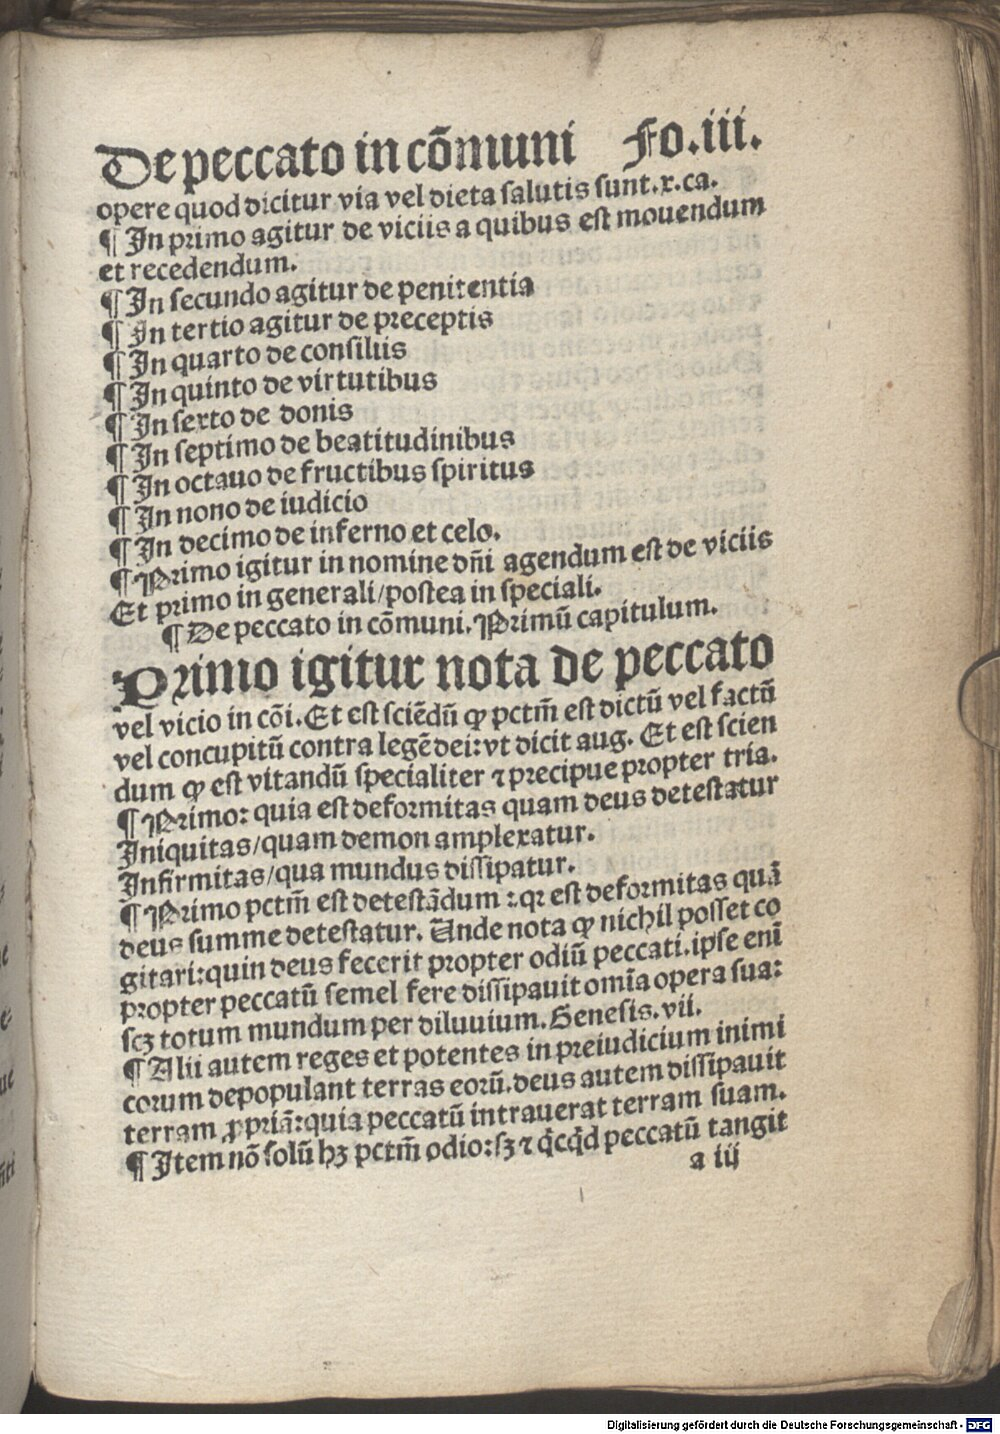 De peccato in cõmuni Fo.iii.
opere quod dicitur via vel dieta salutis sunt.x.ca.
¶ In primo agitur de viciis a quibus est mouendum
et recedendum.
¶ In secundo agitur de penitentia
¶ In tertio agitur de preceptis
¶ In quarto de consiliis
¶ In quinto de virtutibus
¶ In sexto de donis
¶ In septimo de beatitudinibus
¶ In octauo de fructibus spiritus
¶ In nono de iudicio
¶ In decimo de inferno et celo.
¶ Primo igitur in nomine dñi agendum est de viciis
Et primo in generali/postea in speciali.
¶ De peccato in cõmuni. Primũ capitulum.
Primo igitur nota de peccato
vel vicio in cõi. Et est sciẽdũ ꝙ pctm̃ est dictũ vel factũ
vel concupitũ contra legẽ dei: vt dicit aug. Et est scien
dum ꝙ est vitandũ specialiter ⁊ precipue propter tria.
¶ Primo: quia est deformitas quam deus detestatur
Iniquitas/quam demon amplexatur.
Infirmitas/qua mundus dissipatur.
¶ Primo pctm̃ est detestãdum: qꝛ est deformitas quã
deus summe detestatur. Unde nota ꝙ nichil posset co
gitari: quin deus fecerit propter odiũ peccati. ipse enĩ
propter peccatũ semel fere dissipauit omĩa opera sua:
scꝫ totum mundum per diluuium. Genesis. vii.
¶ Alii autem reges et potentes in preiudicium inimi
corum depopulant terras eorũ. deus autem dissipauit
terram ꝓpriã: quia peccatũ intrauerat terram suam.
¶ Item nõ solũ hꝫ pctm̃ odio: sꝫ ⁊ q̇cq̇d peccatũ tangit
a iij
Digitalisierung gefördert durch die Deutsche Forschungsgemeinschaft - DFG